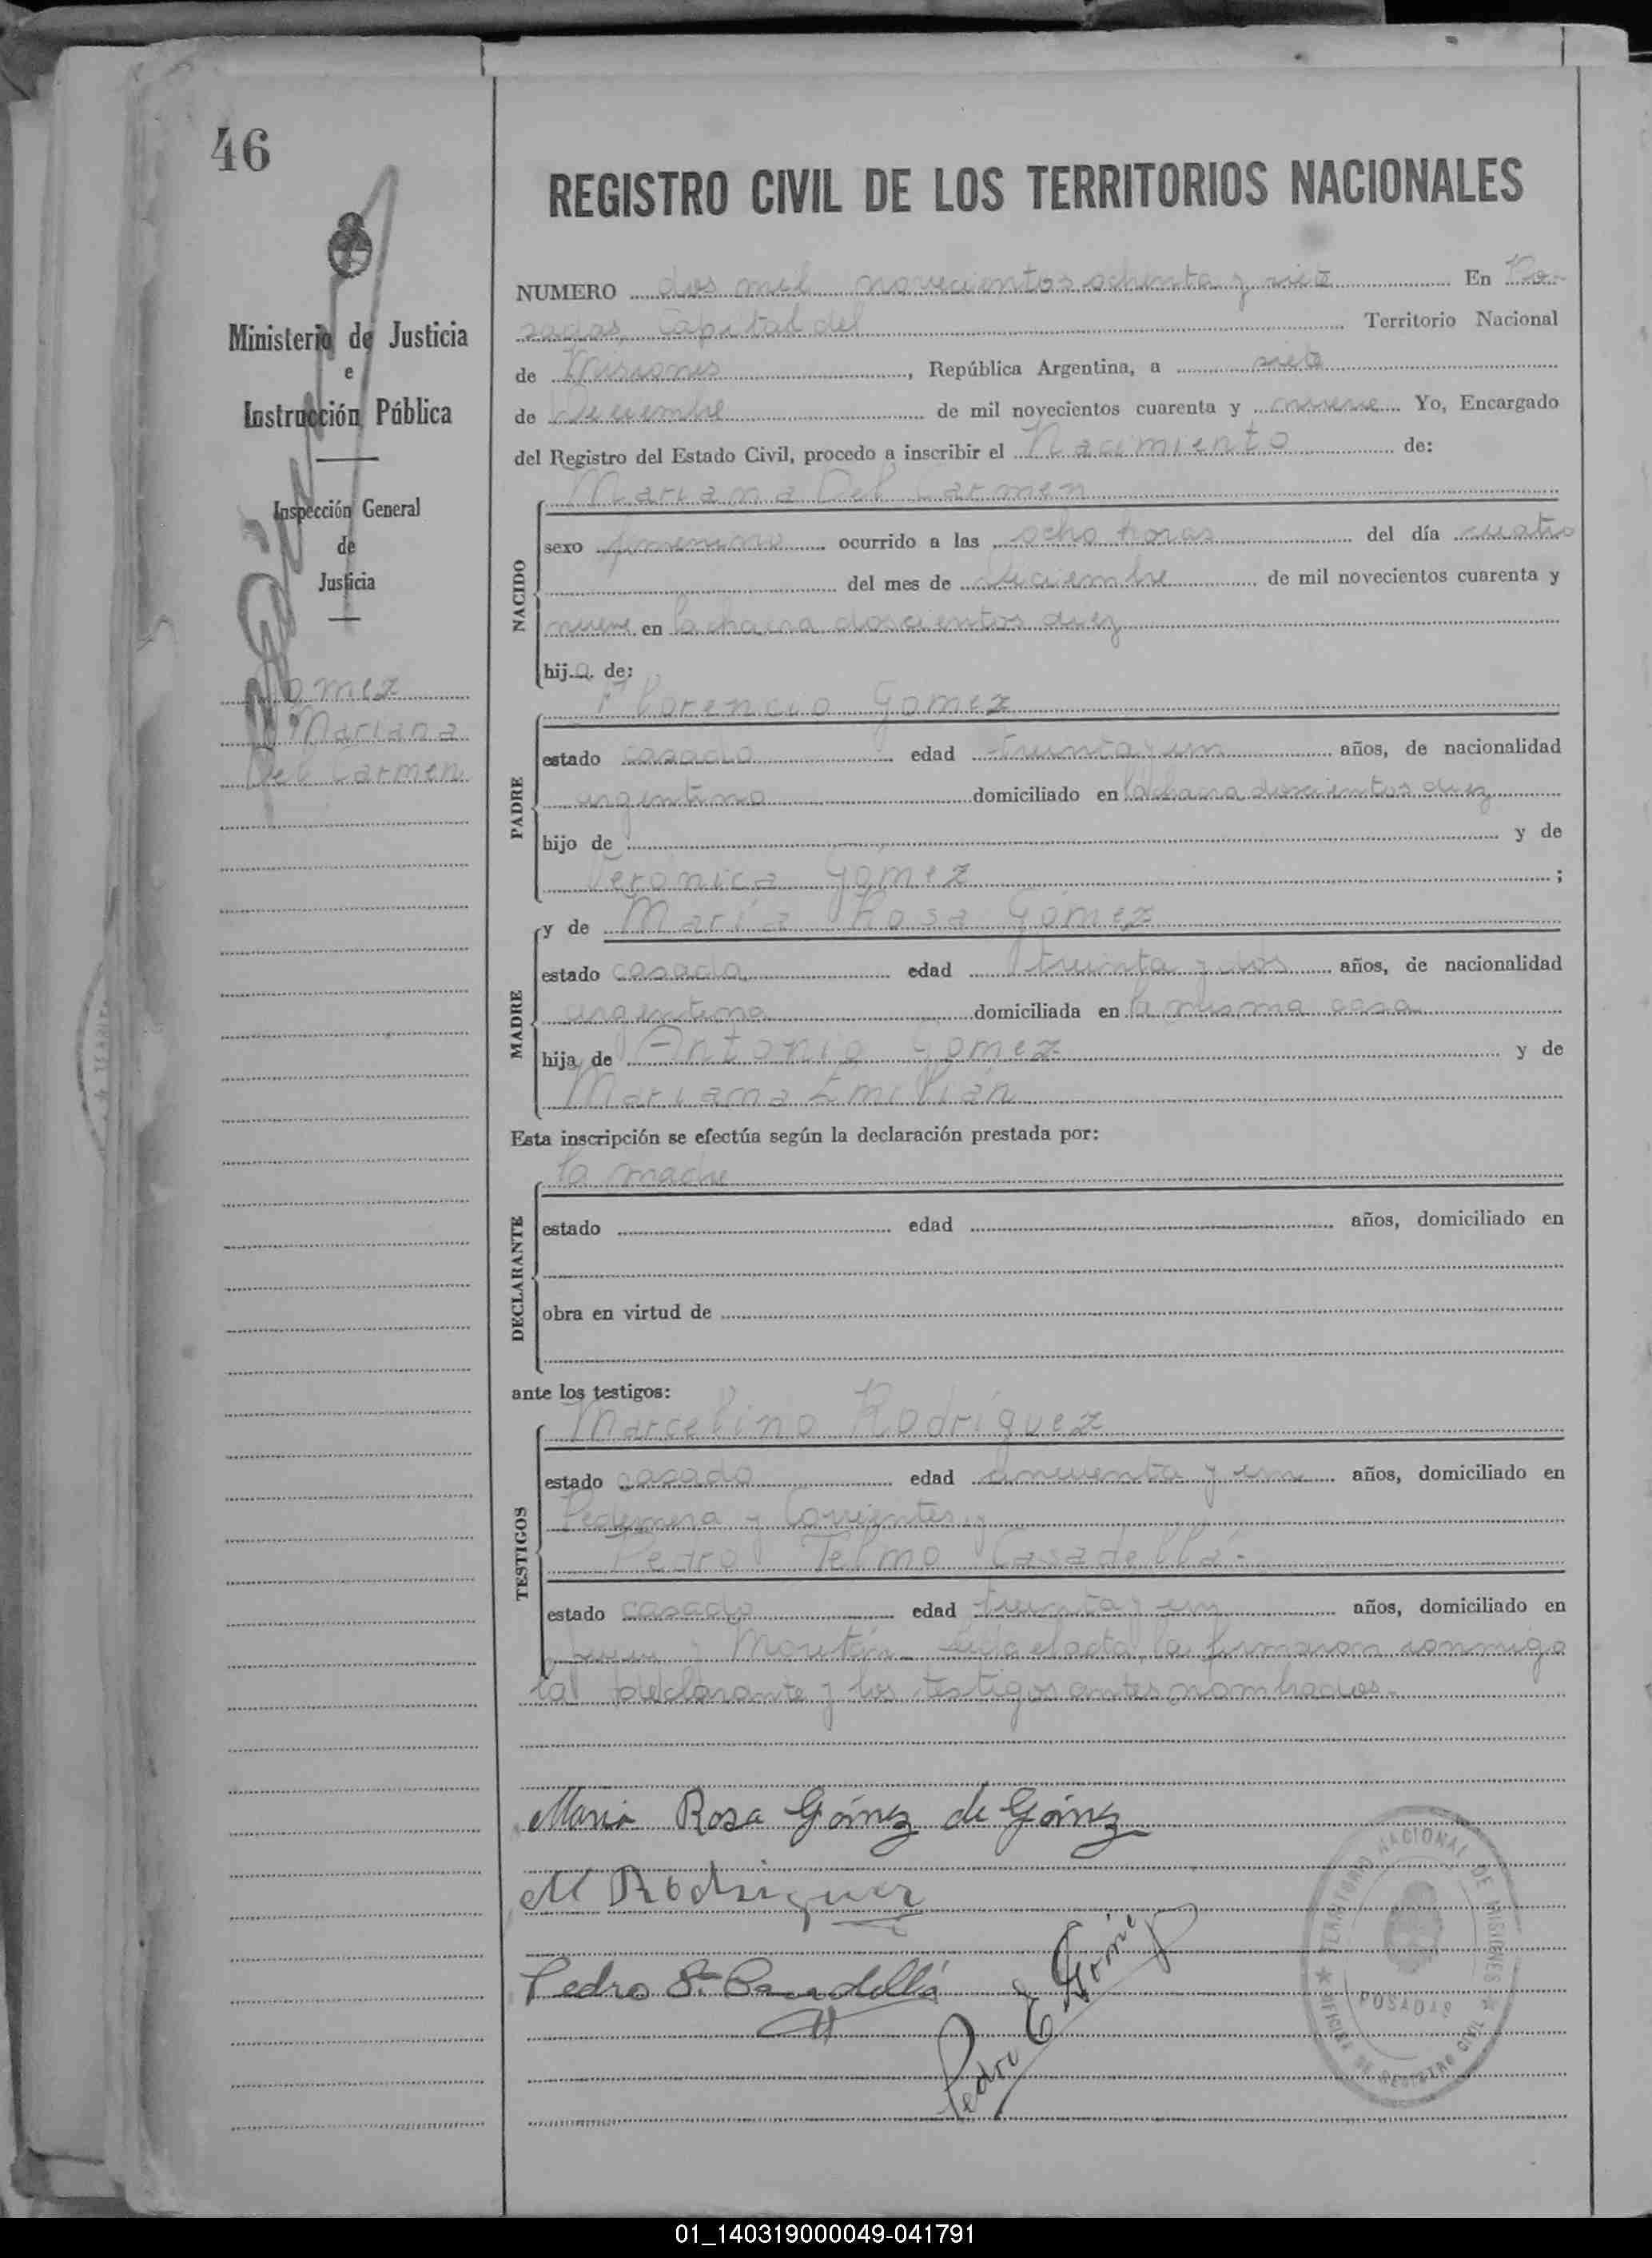 46
REGISTRO CIVIL DE LOS TERRITORIOS NACIONALES
Ministerio de Justicia
e
Instrucción Pública
Inspección General
de
Justicia
Gomez
Mariana
Del Carmen
NUMERO dos mil novecientos ochenta y siete En Po-
sadas, Capital del Territorio Nacional
de Misiones, República Argentina, a siete
de Deciembre de mil novecientos cuarenta y nueve Yo, Encargado
del Registro del Estado Civil, procedo a inscribir el Nacimiento de:
NACIDO
Mariana Del Carmen
sexo femenino ocurrido a las ocho horas del día cuatro
del mes de deciembre de mil novecientos cuarenta y
nueve en la chacra doscientos diez
hija de:
PADRE
Florencio Gomez
estado casado edad treinta y un años, de nacionalidad
argentino domiciliado en la chacra doscientos diez
hijo de y de
Verónica Gómez ;
MADRE
y de María Rosa Gómez
estado casada edad treinta y dos años, de nacionalidad
argentina domiciliada en la misma casa
hija de Antonio Gomez y de
Mariana Emilian
Esta inscripción se efectúa según la declaración prestada por:
DECLARANTE
la madre
estado edad años, domiciliado en
obra en virtud de
ante los testigos:
TESTIGOS
Marcelino Rodríguez
estado casado edad cincuenta y un años, domiciliado en
Pedernera y Corrientes, y
Pedro Telmo Casadellá-
estado casado edad treinta y un años, domiciliado en
y Moritán. Leida el acta, la firmaron conmigo
la declarante y los testigos antes nombrados.-
Maria Rosa Gómez de Gómez
M Rodriguez
Pedro Casadellá
Pedro E.
TERRITORIO NACIONAL DE MISIONES
POSADAS
OFICINA DE REGISTRO CIVIL
01_140319000049-041791